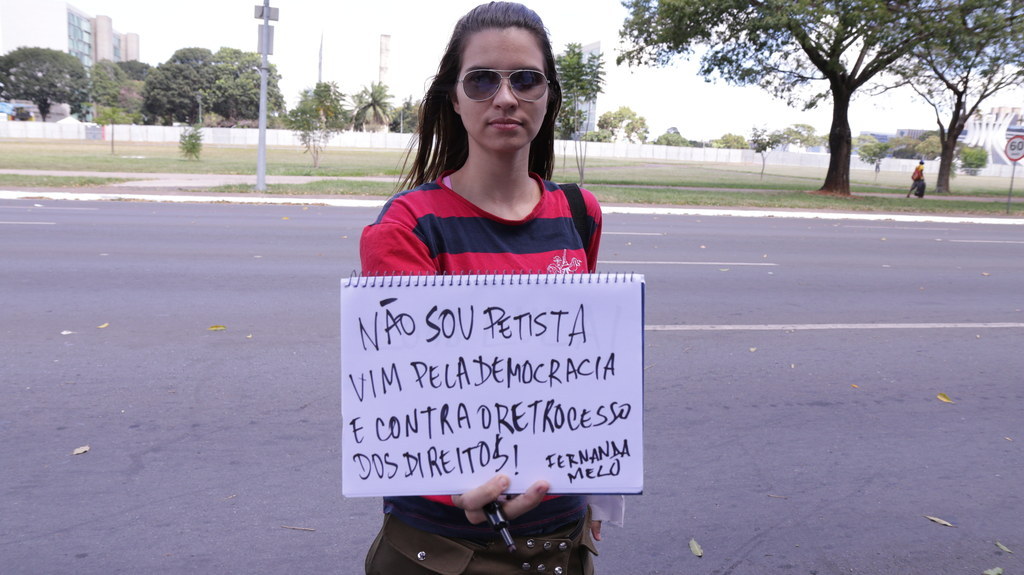 NÃO SOU PETISTA
VIM PELA DEMOCRACIA
E CONTRA O RETROCESSO
DOS DIREITOS!
FERNANDA
MELO
60